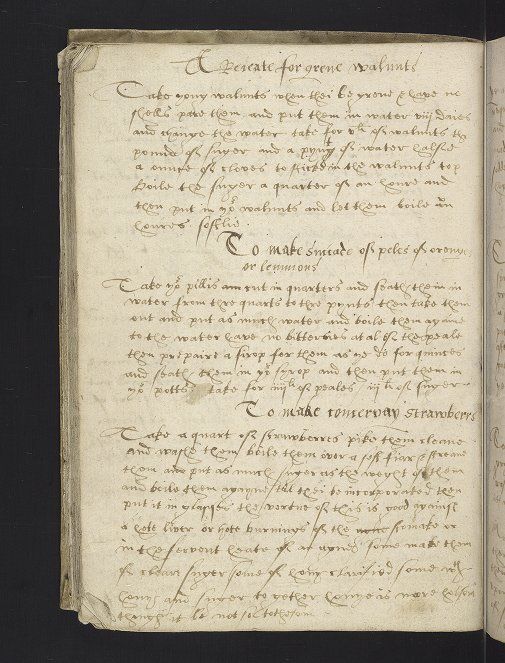 A Receate for grene walnuts
Take yong walnuts when thei be grene & have no
shells pare them and put them in water viij daies
and change the water take for vli of walnuts
pounde of suger and a pynt of water halfe
a ounce of cloves to sticke in the walnuts top
boile the suger a quarter of an houre and
then put in yor walnuts and let them boile an
houres
To make sucade of peles of orenges
or lemmons
Take yor pillis cut in quarters and seath them in
water from three quarts to three pynts then take them
out and put as much water and boile them againe
to the water have no bitternes at al of the peale
then prepaire a sirop for them as ye do for quinces
and seath them in yor syrop and then put them in
yor potts take for iiijli of peales iijli of suger
To make conservay strawberres
Take a quart of strawberres pike them cleane
and washe them boile them over a soft fiar & streane
them and put as much suger as the weght of them
and boile them agayne till thei be incorporated then
put it in glasses the vertue of this is good against
a hote liver or hote burnings of the stomake or
in the fervent heate of an agues some make them
of cleare suger some of hony clarified some wth
hony and suger to gether honye is more holsom
though it be not so